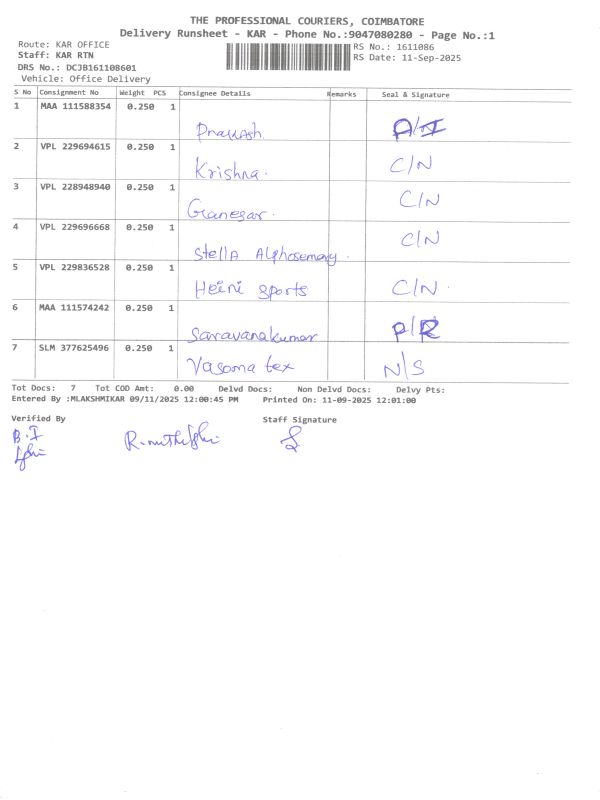 THE PROFESSIONAL COURIERS, COIMBATORE
Delivery Runsheet - KAR - Phone No.:9047080280 - Page No.:1
Route: KAR OFFICE RS No.: 1611086
Staff: KAR RTN RS Date: 11-Sep-2025
DRS No.: DCJB161108601
Vehicle: Office Delivery
S No Consignment No Weight PCS Consignee Details Remarks Seal & Signature
1 MAA 111588354 0.250 1
Prakash
2 VPL 229694615 0.250 1
Krishna. C/N
3 VPL 228948940 0.250 1
Ganesar. C/N
4 VPL 229696668 0.250 1
Stella Alphosemary. C/N
5 VPL 229836528 0.250 1
Heini sports C/N.
6 MAA 111574242 0.250 1
Saravanakumar P/R
7 SLM 377625496 0.250 1
Vasoma tex N/S
Tot Docs: 7 Tot COD Amt: 0.00 Delvd Docs: Non Delvd Docs: Delvy Pts:
Entered By :MLAKSHMIKAR 09/11/2025 12:00:45 PM Printed On: 11-09-2025 12:01:00
Verified By Staff Signature
B.I